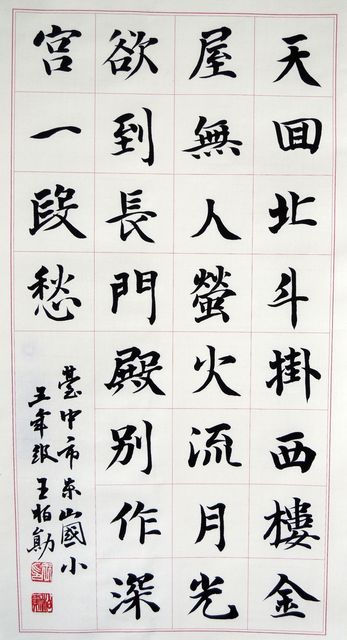 天回北斗掛西樓金
屋無人螢火流月光
欲到長門殿別作深
宮一段愁
臺中市東山國小
五年級王柏勛